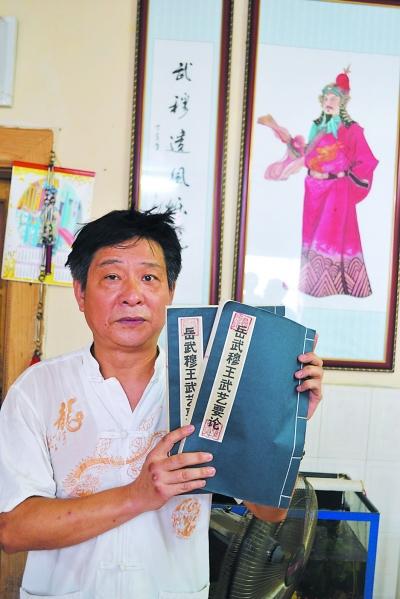 武穆遗风
岳武穆王武艺
岳武穆王武艺要论
龙